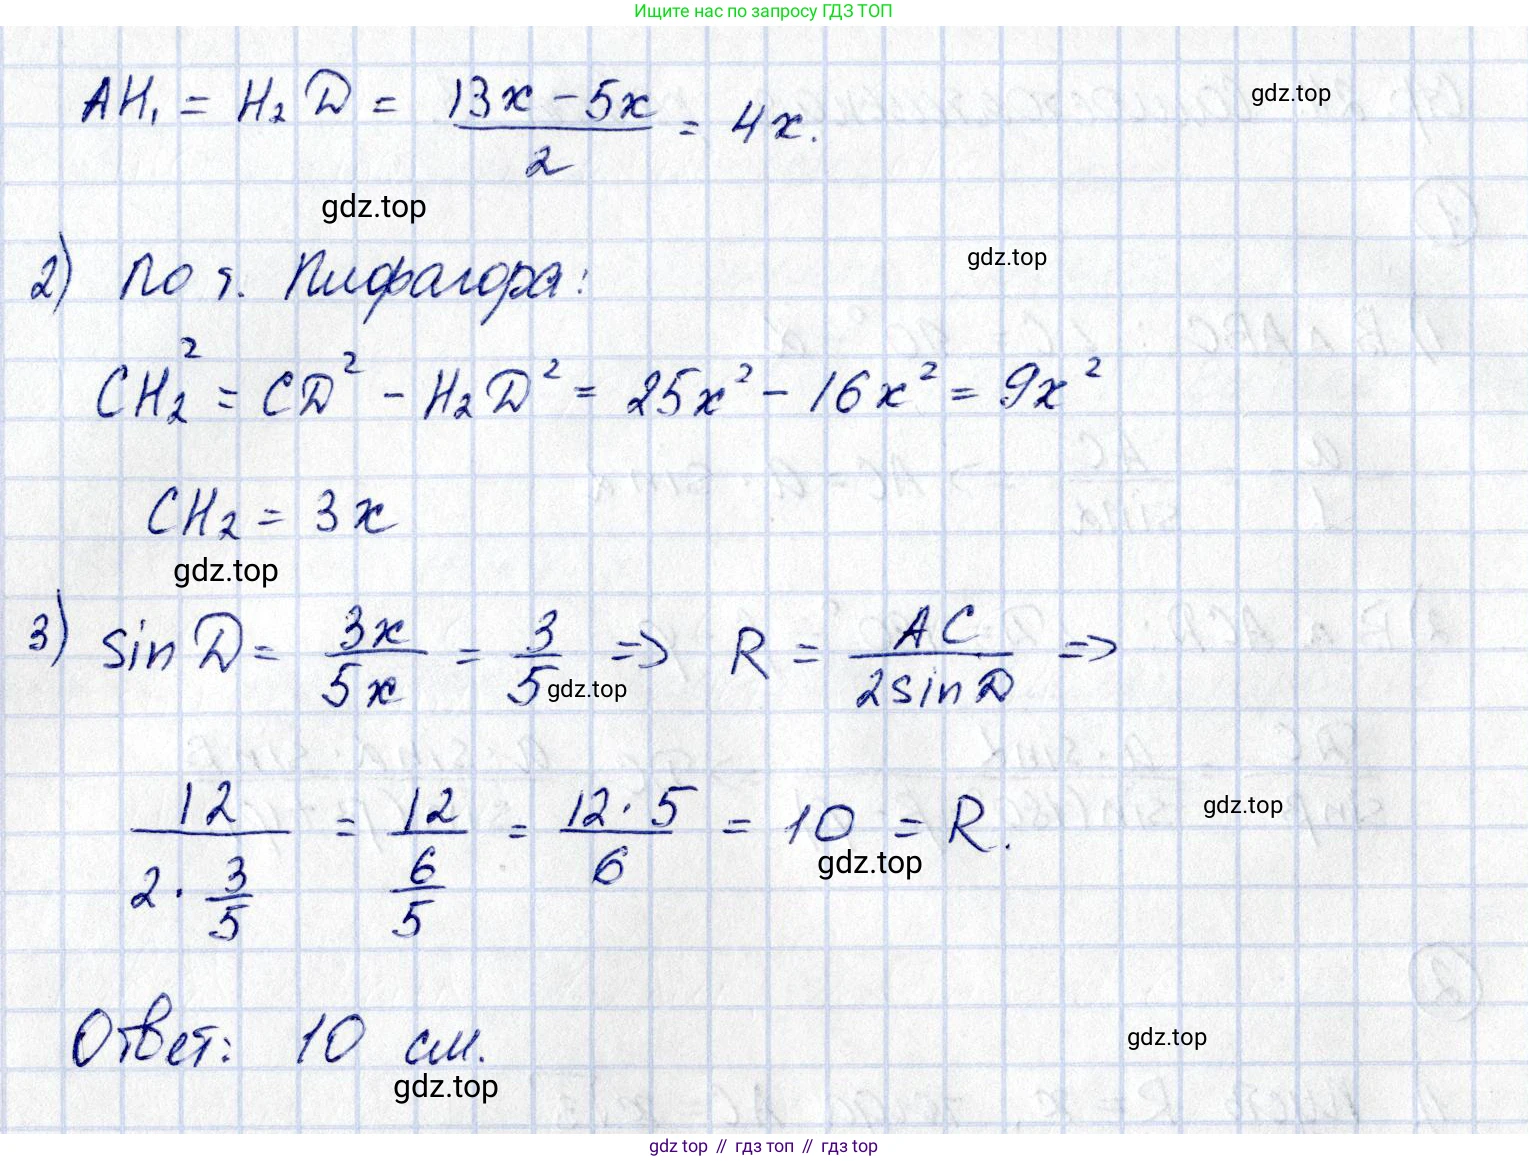 Ищите нас по запросу ГДЗ ТОП
AH₁ = H₂D = (13x − 5x)/2 = 4x.
gdz.top
gdz.top
2) По т. Пифагора:
gdz.top
CH₂² = CD² − H₂D² = 25x² − 16x² = 9x²
CH₂ = 3x
gdz.top
3) sin D = 3x/5x = 3/5 => R = AC/(2sin D) =>
gdz.top
12/(2 · 3/5) = 12/(6/5) = (12 · 5)/6 = 10 = R.
gdz.top
gdz.top
Ответ: 10 см.
gdz.top
gdz.top
gdz top // гдз топ // гдз top